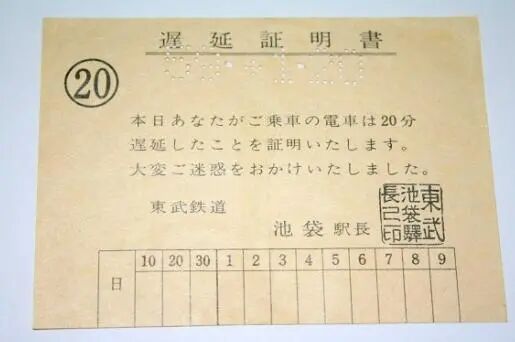 遅延証明書
20
本日あなたがご乗車の電車は20分
遅延したことを証明いたします。
大変ご迷惑をおかけいたしました。
東武鉄道
池袋駅長
東武
池袋驛
長之印
日 10 20 30 1 2 3 4 5 6 7 8 9